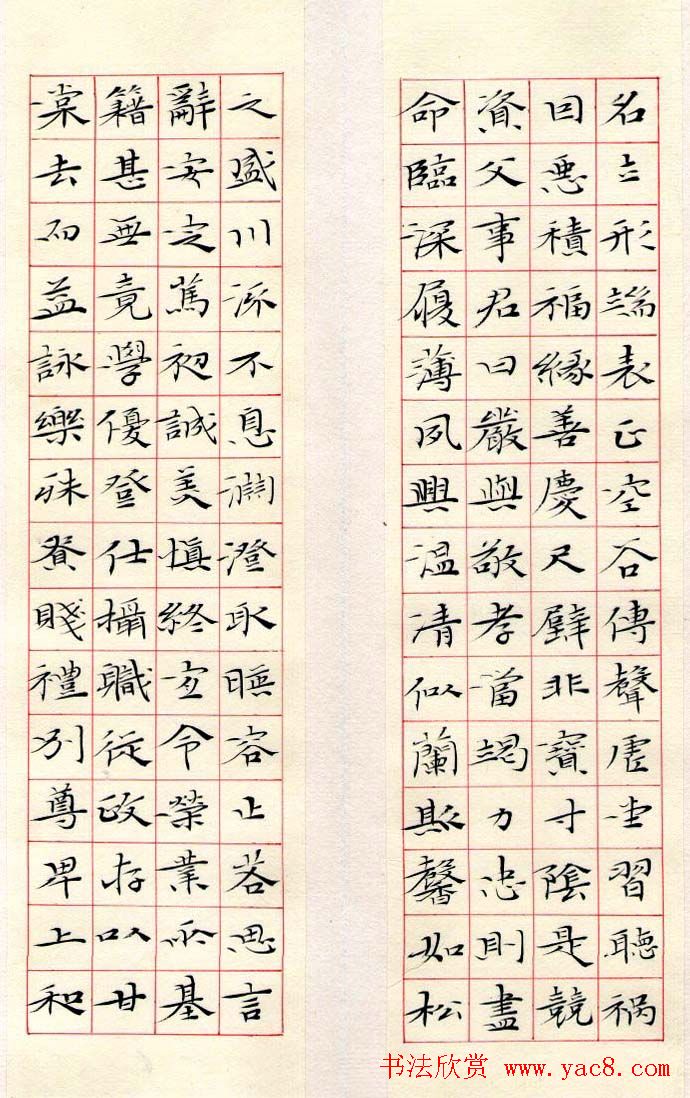 名立形端表正空谷傳聲虛堂習聽禍
因惡積福緣善慶尺璧非寶寸陰是競
資父事君曰嚴與敬孝當竭力忠則盡
命臨深履薄夙興温清似蘭斯馨如松
之盛川流不息淵澄取暎容止若思言
辭安定篤初誠美慎終宜令榮業所基
籍甚無竟學優登仕攝職從政存以甘
棠去而益詠樂殊貴賤禮別尊卑上和
书法欣赏 www.yac8.com